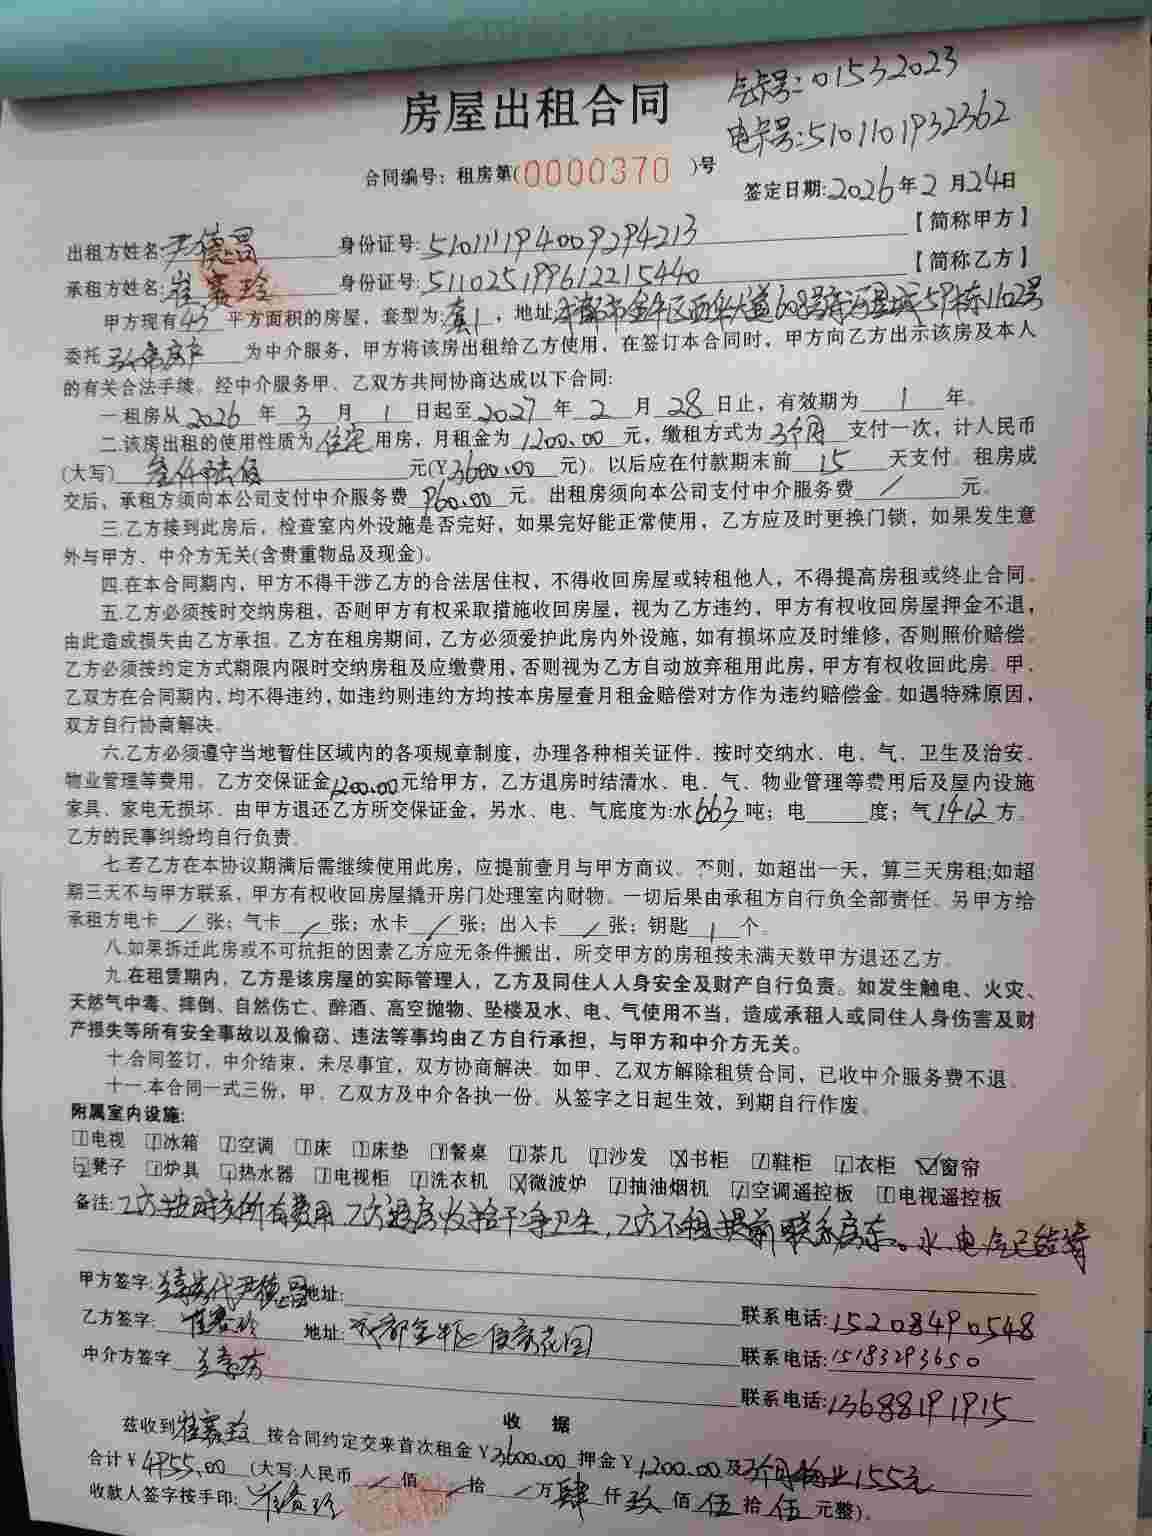 气卡号:01532023
房屋出租合同
电卡号:5101101932362
合同编号：租房第(0000370)号
签定日期:2026年2月24日
出租方姓名:尹德昌 身份证号:510111194009294213 【简称甲方】
承租方姓名:崔赛玲 身份证号:511025199612215440 【简称乙方】
甲方现有45平方面积的房屋，套型为:套1，地址:成都市金牛区西华大道608号府河星城59栋1102号
委托 房产 为中介服务，甲方将该房出租给乙方使用，在签订本合同时，甲方向乙方出示该房及本人
的有关合法手续。经中介服务甲、乙双方共同协商达成以下合同:
一.租房从2026年3月1日起至2027年2月28日止，有效期为1年。
二.该房出租的使用性质为住宅用房，月租金为1200.00元，缴租方式为3个月支付一次，计人民币
(大写)叁仟陆佰元(¥3600.00元)。以后应在付款期末前15天支付。租房成
交后，承租方须向本公司支付中介服务费960.00元。出租房须向本公司支付中介服务费/元。
三.乙方接到此房后，检查室内外设施是否完好，如果完好能正常使用，乙方应及时更换门锁，如果发生意
外与甲方、中介方无关(含贵重物品及现金)。
四.在本合同期内，甲方不得干涉乙方的合法居住权，不得收回房屋或转租他人，不得提高房租或终止合同。
五.乙方必须按时交纳房租，否则甲方有权采取措施收回房屋，视为乙方违约，甲方有权收回房屋押金不退，
由此造成损失由乙方承担。乙方在租房期间，乙方必须爱护此房内外设施，如有损坏应及时维修，否则照价赔偿。
乙方必须按约定方式期限内限时交纳房租及应缴费用，否则视为乙方自动放弃租用此房，甲方有权收回此房。甲、
乙双方在合同期内，均不得违约，如违约则违约方均按本房屋壹月租金赔偿对方作为违约赔偿金。如遇特殊原因，
双方自行协商解决。
六.乙方必须遵守当地暂住区域内的各项规章制度，办理各种相关证件、按时交纳水、电、气、卫生及治安、
物业管理等费用。乙方交保证金1200.00元给甲方，乙方退房时结清水、电、气、物业管理等费用后及屋内设施
家具、家电无损坏、由甲方退还乙方所交保证金，另水、电、气底度为:水663吨；电 度；气1412方。
乙方的民事纠纷均自行负责。
七.若乙方在本协议期满后需继续使用此房，应提前壹月与甲方商议。否则，如超出一天，算三天房租;如超
期三天不与甲方联系，甲方有权收回房屋撬开房门处理室内财物。一切后果由承租方自行负全部责任。另甲方给
承租方电卡/张；气卡/张；水卡/张；出入卡/张；钥匙1个。
八.如果拆迁此房或不可抗拒的因素乙方应无条件搬出，所交甲方的房租按未满天数甲方退还乙方。
九.在租赁期内，乙方是该房屋的实际管理人，乙方及同住人人身安全及财产自行负责。如发生触电、火灾、
天然气中毒、摔倒、自然伤亡、醉酒、高空抛物、坠楼及水、电、气使用不当，造成承租人或同住人身伤害及财
产损失等所有安全事故以及偷窃、违法等事均由乙方自行承担，与甲方和中介方无关。
十.合同签订，中介结束，未尽事宜，双方协商解决。如甲、乙双方解除租赁合同，已收中介服务费不退。
十一.本合同一式三份，甲、乙双方及中介各执一份。从签字之日起生效，到期自行作废。
附属室内设施:
电视 冰箱 空调 床 床垫 餐桌 茶几 沙发 书柜 鞋柜 衣柜 窗帘
凳子 炉具 热水器 电视柜 洗衣机 微波炉 抽油烟机 空调遥控板 电视遥控板
备注:乙方按时交所有费用 乙方退房收拾干净卫生，乙方不租提前联系房东。水、电、气已结清
甲方签字: 代尹德昌 地址: 联系电话:15208490548
乙方签字:崔赛玲 地址:成都金牛区 花园 联系电话:15183293650
中介方签字 联系电话:13688191915
收 据
兹收到崔赛玲按合同约定交来首次租金¥3600.00押金¥1200.00及3个月物业155元
合计¥4955.00(大写:人民币/佰/拾/万肆仟玖佰伍拾伍元整)。
收款人签字按手印:崔赛玲